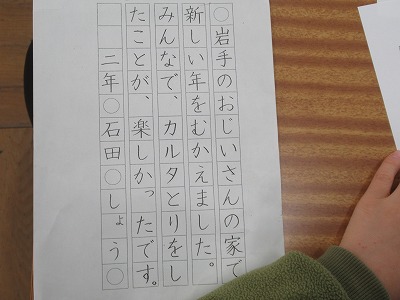 ○岩手のおじいさんの家で
新しい年をむかえました。
みんなで、カルタとりをし
たことが、楽しかったです。
二年○石田○しょう○